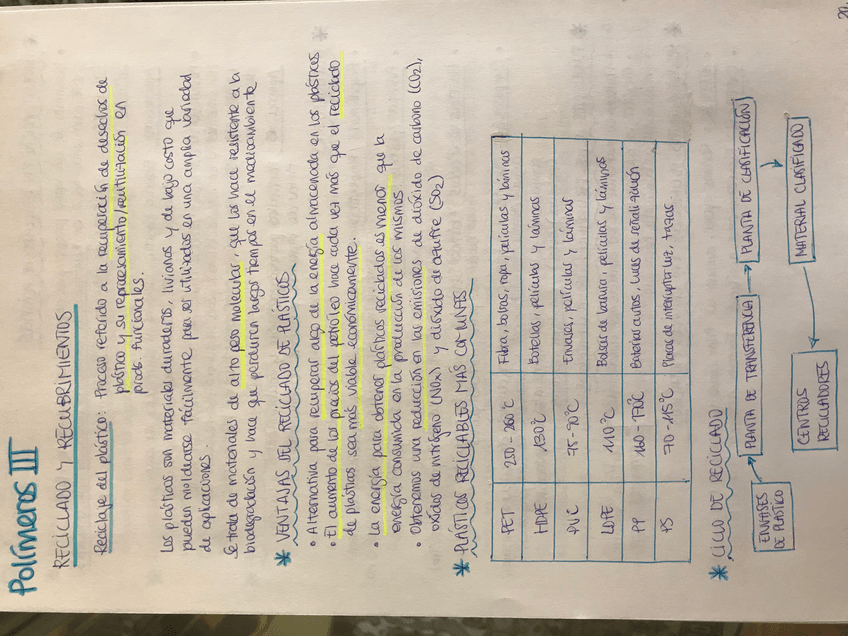 20.
Polímeros III
RECICLADO Y RECUBRIMIENTOS
Reciclaje del plástico: Proceso referido a la recuperación de desechos de
plástico y su reprocesamiento/reutilización en
prods. funcionales.
Los plásticos son materiales duraderos, livianos y de bajo costo que
pueden moldearse fácilmente para ser utilizados en una amplia variedad
de aplicaciones.
Se trata de materiales de alto peso molecular, que los hace resistente a la
biodegradación y hace que perduren largos tiempos en el medioambiente
* VENTAJAS DEL RECICLADO DE PLÁSTICOS
• Alternativa para recuperar algo de la energía almacenada en los plásticos
• El aumento de los precios del petróleo hace cada vez más que el reciclado
de plásticos sea más viable económicamente.
• La energía para obtener plásticos reciclados es menor que la
energía consumida en la producción de los mismos
• Obtenemos una reducción en las emisiones de dióxido de carbono (CO2),
óxidos de nitrógeno (NOx) y dióxido de azufre (SO2)
* PLÁSTICOS RECICLABLES MÁS COMUNES
PET 250-260°C Fibra, bolsas, ropa, películas y láminas
HDPE 130°C Botellas, películas y láminas
PVC 75-90°C Envases, películas y láminas
LDPE 110°C Bolsas de basura, películas y láminas
PP 160-170°C Baterías autos, luces de señalización
PS 70-115°C Placas de interruptor luz, tazas
* CICLO DE RECICLADO
ENVASES DE PLÁSTICO
PLANTA DE TRANSFERENCIA
PLANTA DE CLASIFICACIÓN
MATERIAL CLASIFICADO
CENTROS
RECICLADORES